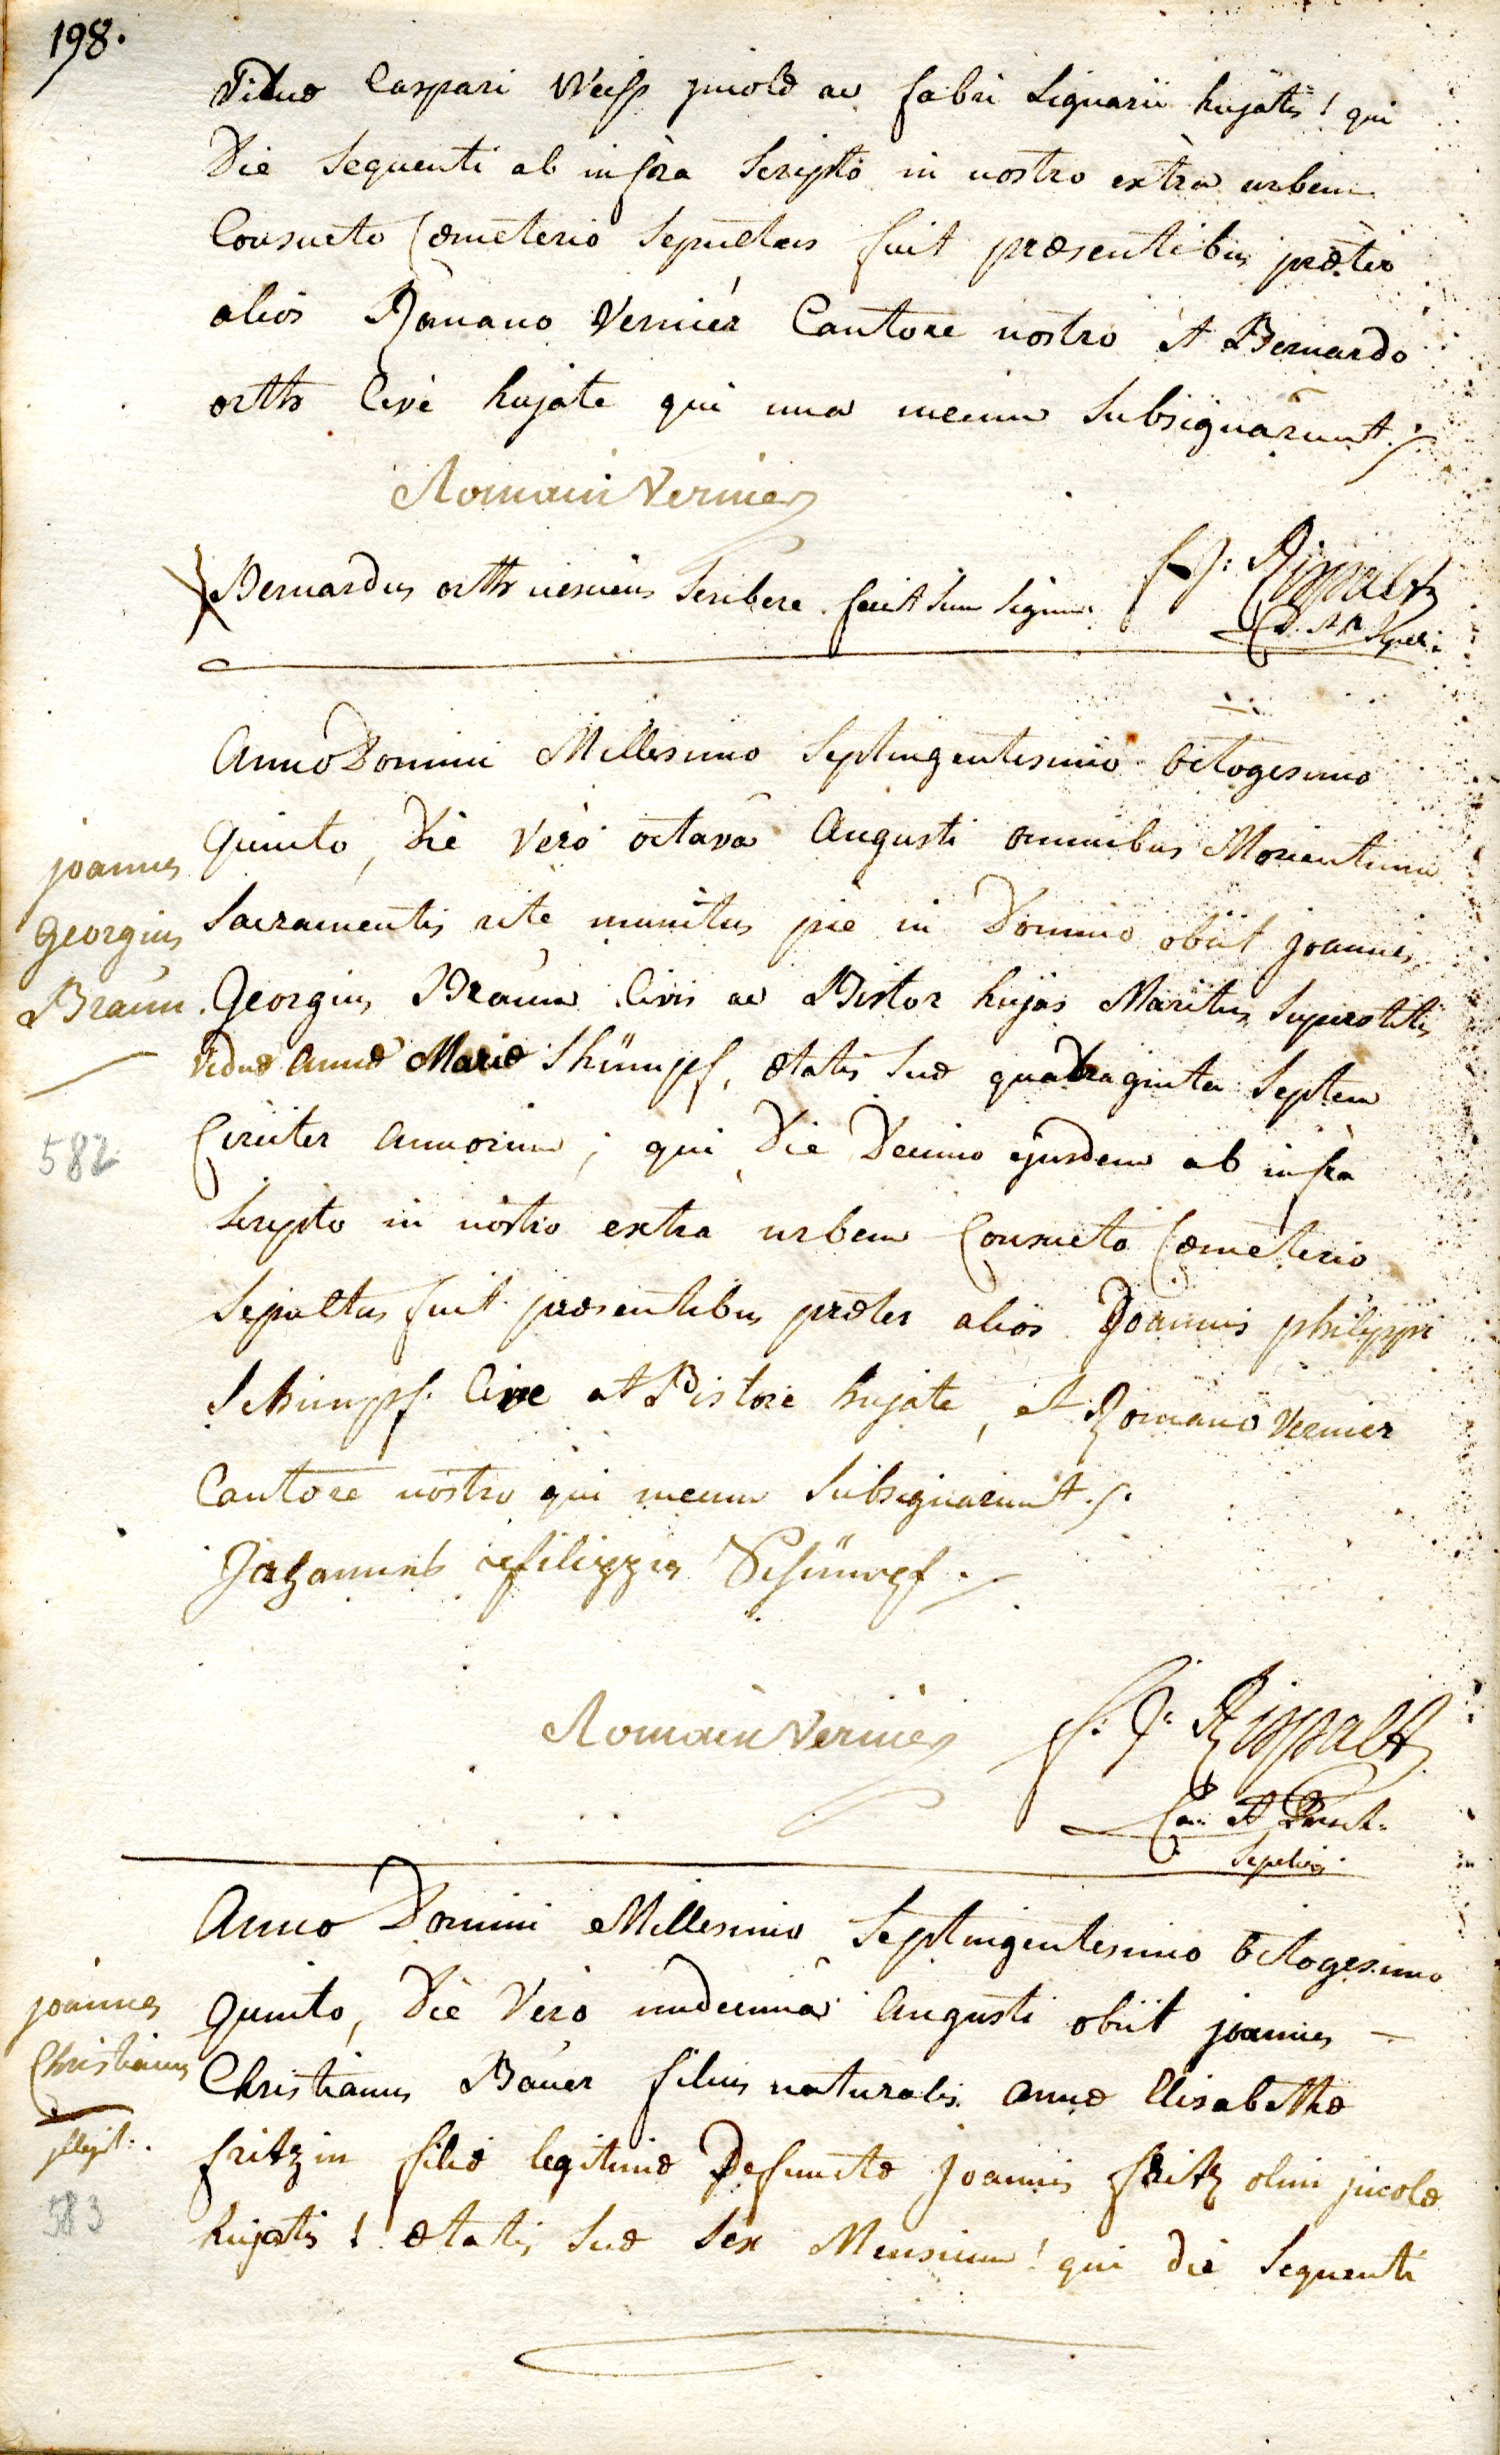 198.
Viduæ Caspari Weiss jncolæ ac fabri Lignarii hujatis! qui
Die Sequenti ab infra Scripto in nostro extra urbem
Consueto Cœmeterio Sepultus fuit præsentibus præter
alios Romano Vernier Cantore nostro et Bernardo
orth Cive hujate qui una mecum Subsignarunt.
Romain Vernier
Bernardus orth nesciens Scribere fecit suum Signum
f. J: Rippalt
Anno Domini Millesimo Septingentesimo octogesimo
Quinto, Die Vero octava Augusti omnibus Morientium
joannes
Georgius
Braun
Sacramentis rite munitus pie in Domino obiit joannes
Georgius Braun Civis ac Pistor hujas Maritus Superstitis
Viduæ annæ Mariæ Shümpf, ætatis suæ quadraginta Septem
582
Circiter annorum; qui Die Decimo ejusdem ab infra
Scripto in nostro extra urbem Consueto Cœmeterio
Sepultus fuit præsentibus præter alios Joannis philippi
Schümpf Cive et Pistore hujate, et Romano Vernier
Cantore nostro qui mecum Subsignarunt.
Johannes Schümpf
Romain Vernier
f: J: Rippalt
Sepeliens
Anno Domini Millesimo Septingentesimo octogesimo
joannes
Christianus
jllegit:.
583
Quinto, Die Vero undecima Augusti obiit joannes –
Christianus Bauer filius naturalis annæ Elisabethæ
fritzin filiæ legitimæ Defuncti Joannis fritz olim jncolæ
hujatis! ætatis suæ Sex Mensium! qui die Sequenti